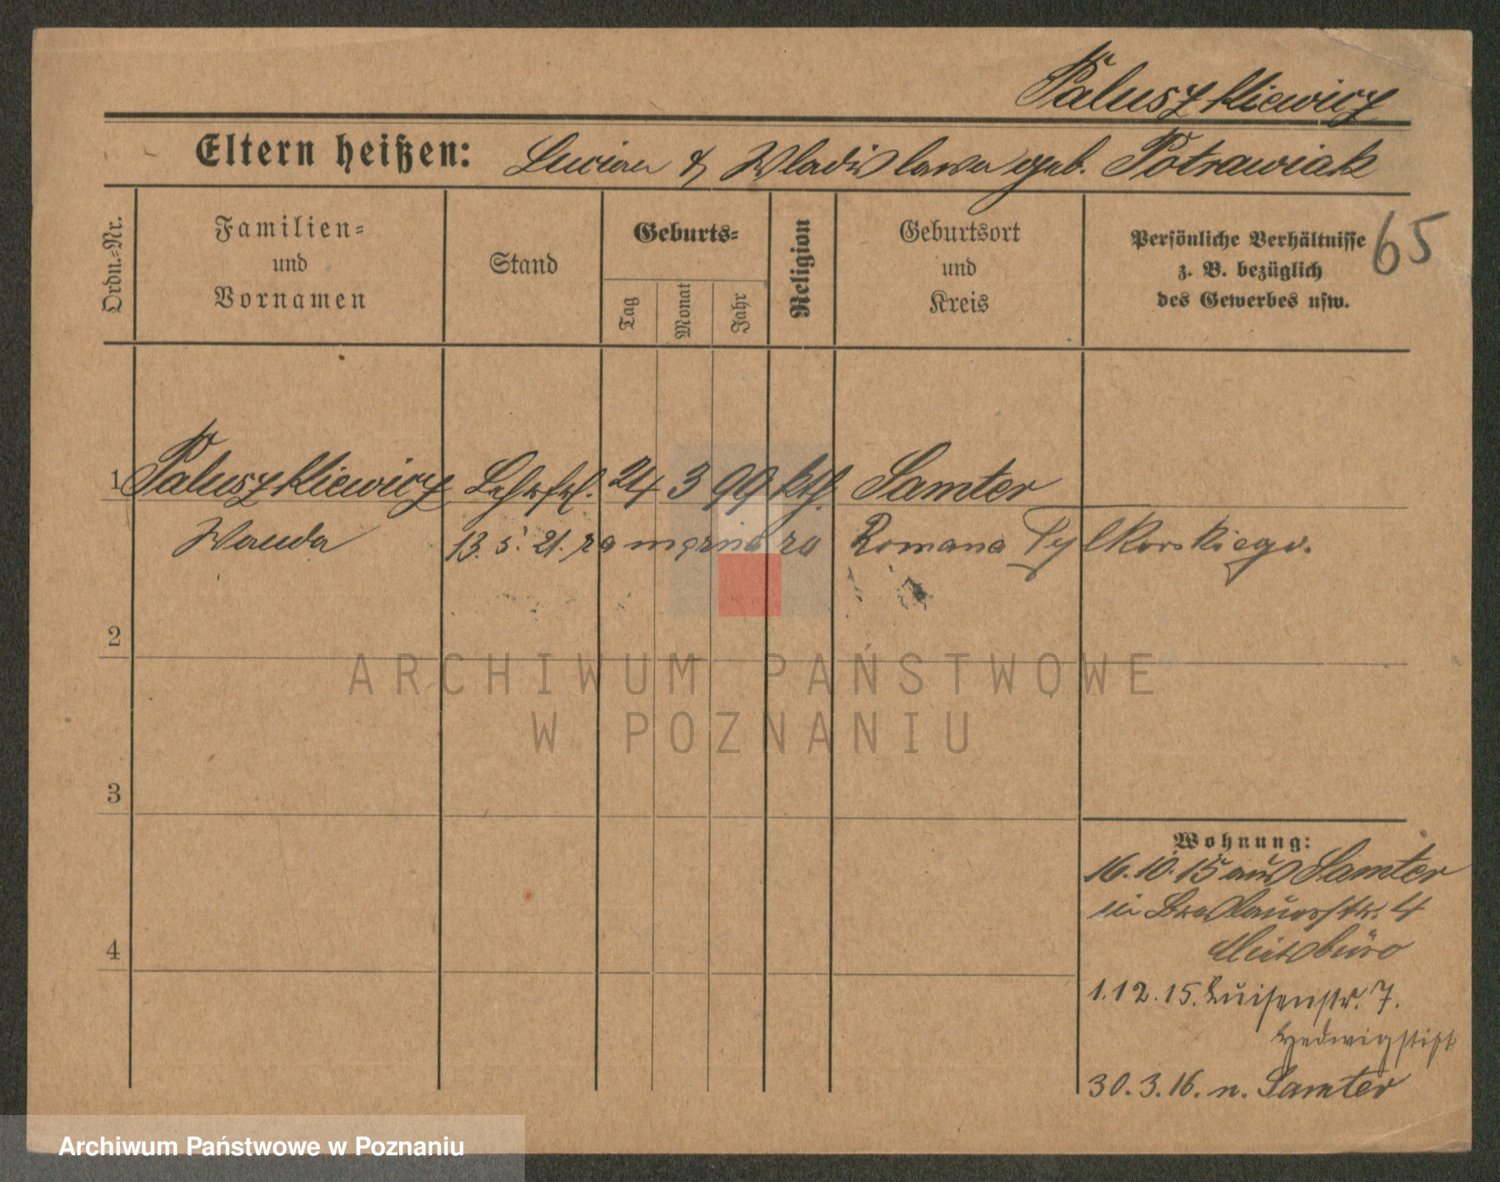 Paluszkiewicz
Eltern heißen: Lucian & Wladislawa geb. Potrawiak
65
Ordn.-Nr.
Familien-
und
Vornamen
Stand
Geburts-
Tag
Monat
Jahr
Religion
Geburtsort
und
Kreis
Persönliche Verhältnisse
z. B. bezüglich
des Gewerbes usw.
1 Paluszkiewicz 24 3 99 kth. Samter
Wanda 13. 5. 21. za mężną za Romana Tylkorskiego.
2
3
4
Wohnung:
16.10.15 aus Samter
in Breslauerstr. 4
Mietsbüro
1.12.15. Luisenstr. 7.
Hedwigstift
30.3.16. n. Samter
ARCHIWUM PAŃSTWOWE
W POZNANIU
Archiwum Państwowe w Poznaniu